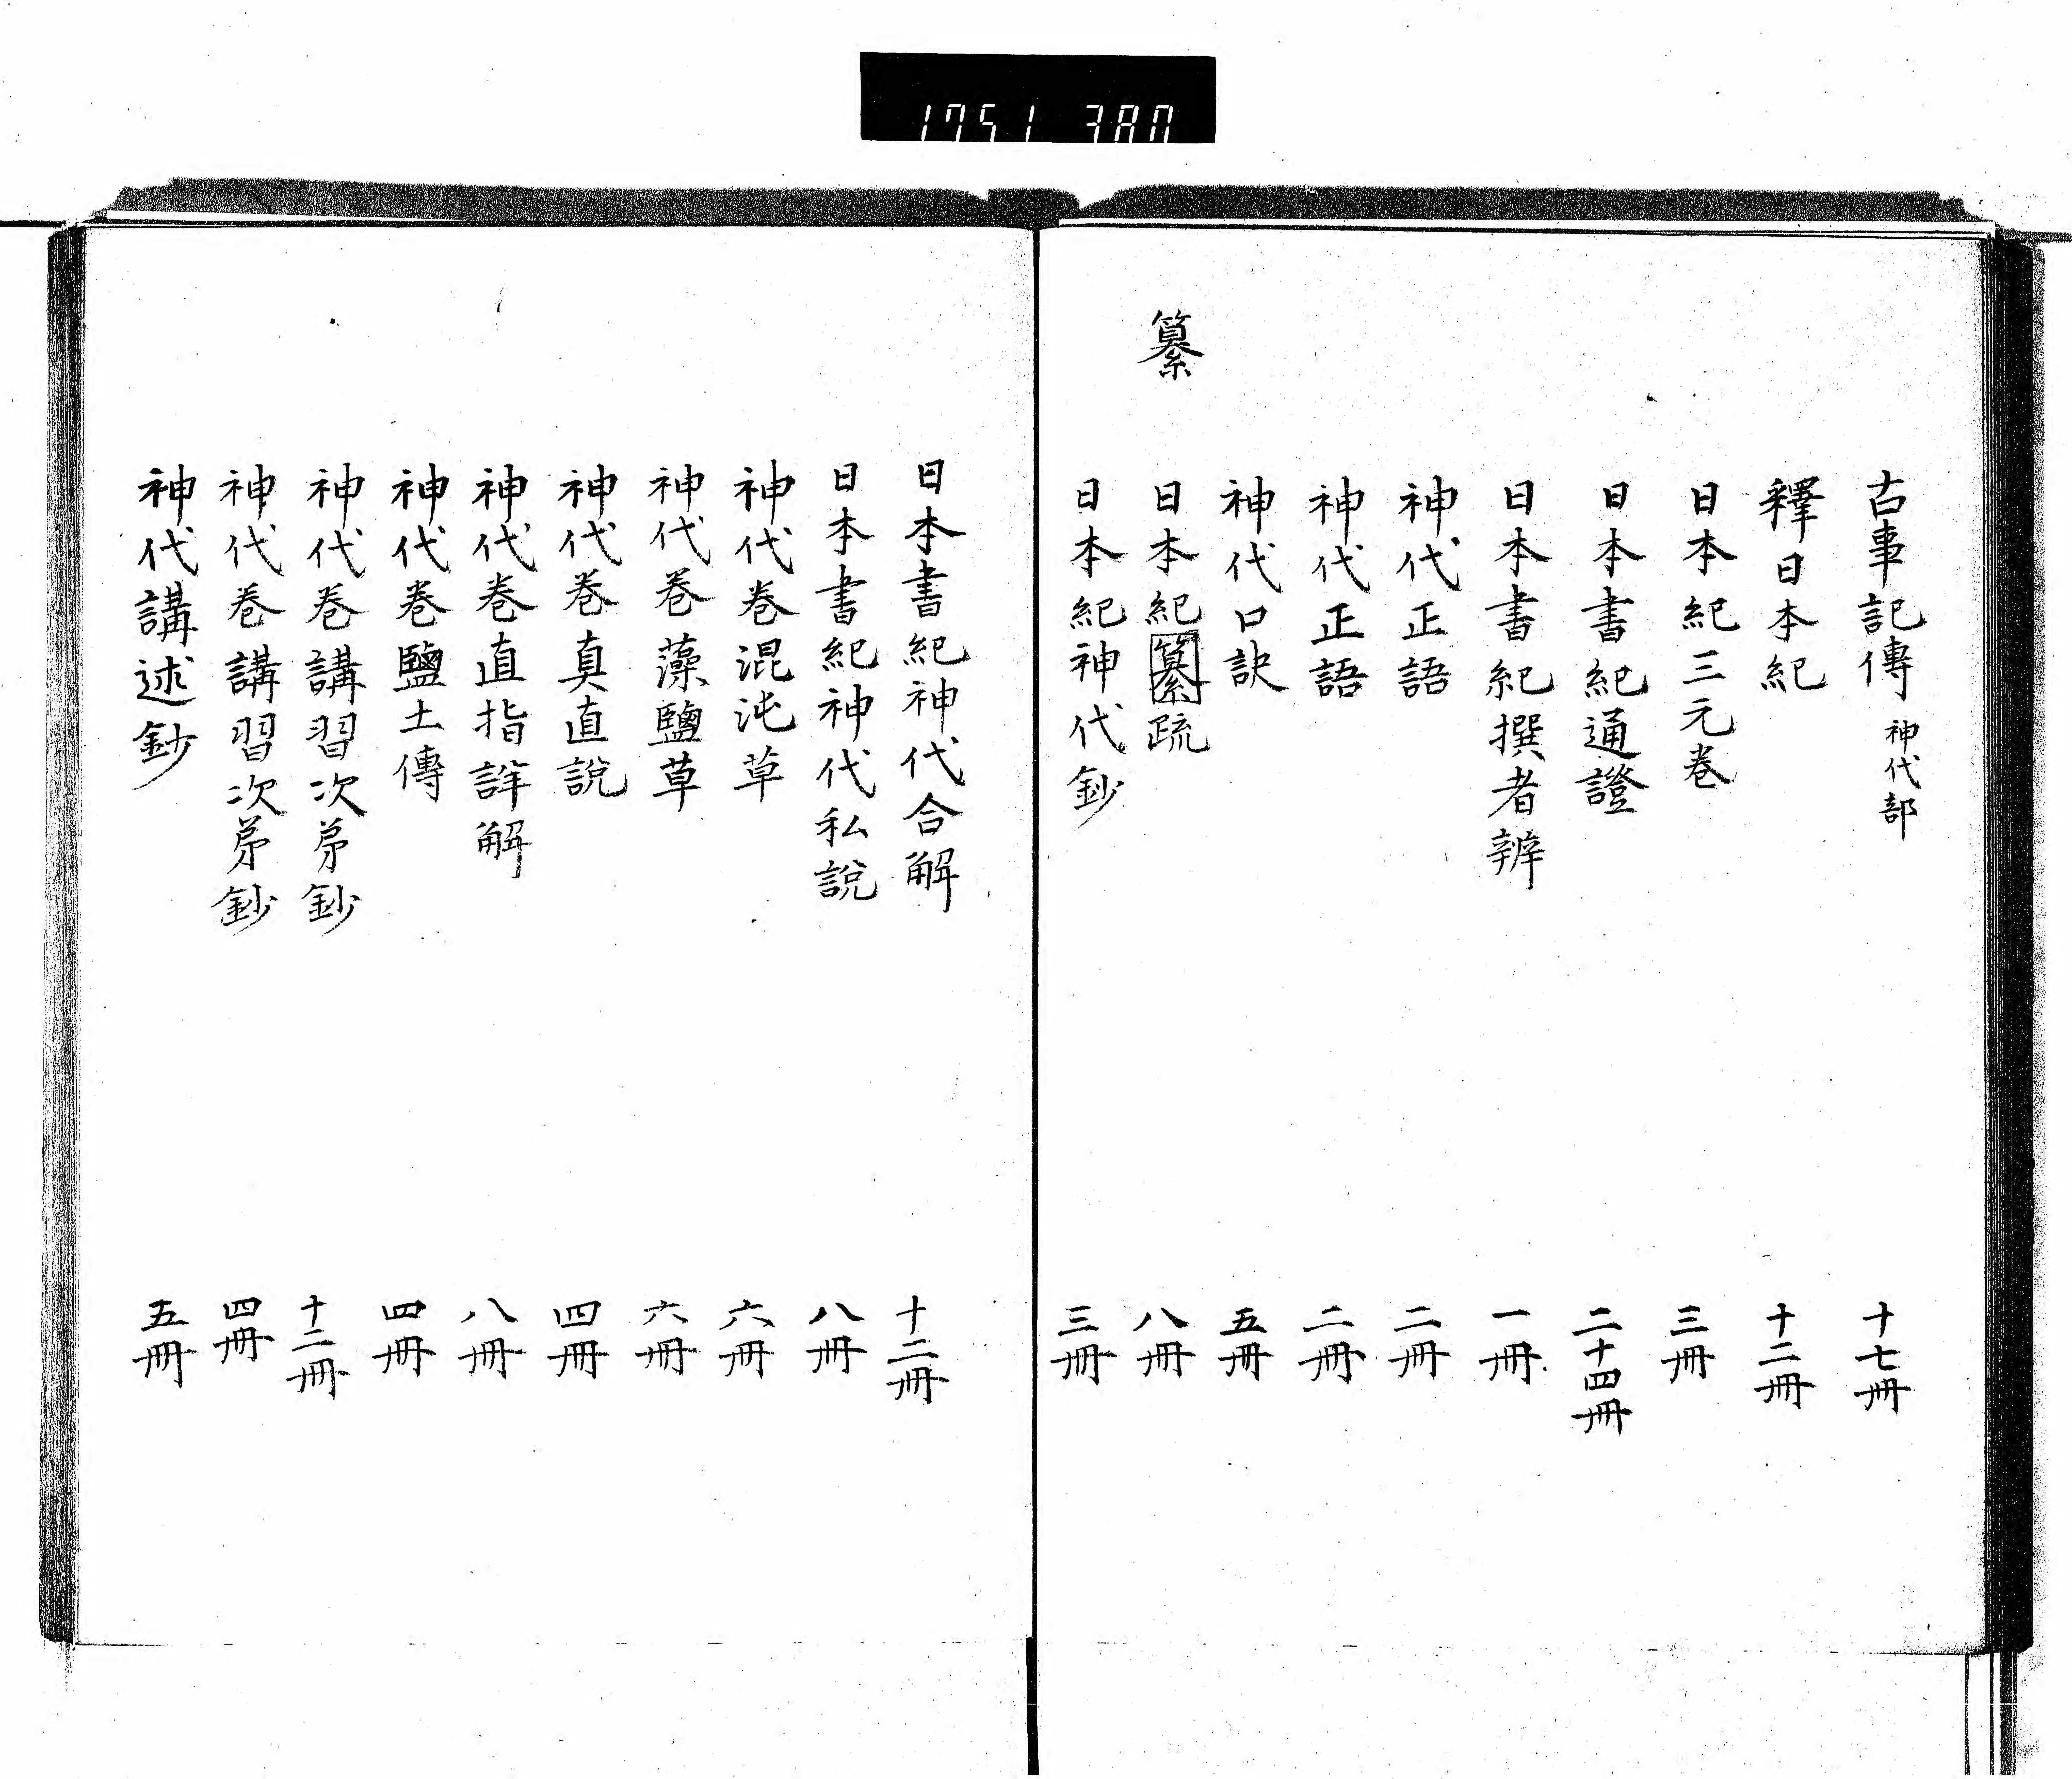 1751 380
古事記傳 神代部 十七冊
釋日本紀 十二冊
日本紀三元巻 三冊
日本書紀通證 二十四冊
日本書紀撰者辨 一冊
神代正語 二冊
神代正語 二冊
神代口訣 五冊
纂
日本紀纂疏 八冊
日本紀神代鈔 三冊
日本書紀神代合解 十二冊
日本書紀神代私說 八冊
神代巻混沌草 六冊
神代巻藻鹽草 六冊
神代巻真直說 四冊
神代巻直指詳解 八冊
神代巻鹽土傳 四冊
神代巻講習次第鈔 十二冊
神代巻講習次第鈔 四冊
神代講述鈔 五冊